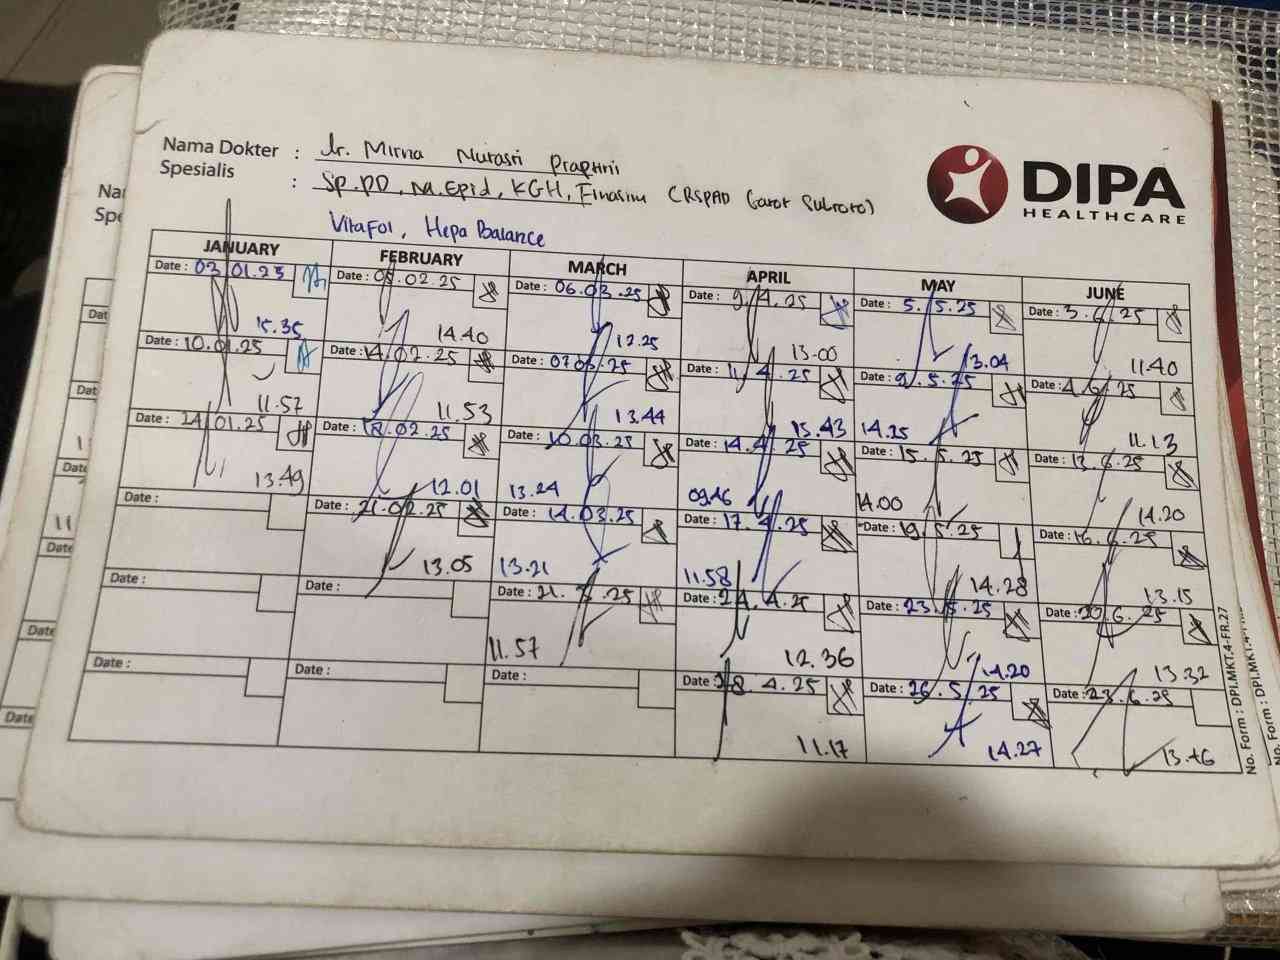 Nama Dokter : dr. Mirna Nurasri Praptini
Spesialis : Sp.PD, M.Epid, KGH, Finasim (RSPAD Gatot Subroto)
DIPA
HEALTHCARE
VitaFol, Hepa Balance
JANUARY FEBRUARY MARCH APRIL MAY JUNE
Date : 03.01.25 Date : 05.02.25 Date : 06.03.25 Date : 9.4.25 Date : 5.5.25 Date : 3.6.25
15.35 14.40 12.25 13.00 13.04 11.40
Date : 10.01.25 Date : 14.02.25 Date : 07.03.25 Date : 11.4.25 Date : 9.5.25 Date : 4.6.25
11.57 11.53 13.44 15.43 14.25 11.13
Date : 24.01.25 Date : 18.02.25 Date : 10.03.25 Date : 14.4.25 Date : 15.5.25 Date : 13.6.25
13.49 12.01 13.24 09.46 14.00 14.20
Date : Date : 21.02.25 Date : 14.03.25 Date : 17.4.25 Date : 19.5.25 Date : 16.6.25
13.05 13.21 11.58 14.28 13.15
Date : Date : Date : 21.3.25 Date : 24.4.25 Date : 23.5.25 Date : 20.6.25
11.57 12.36 14.20 13.32
Date : Date : Date : Date : 28.4.25 Date : 26.5.25 Date : 23.6.25
11.17 14.27 13.46
No. Form : DPI.MKT.4-FR.27